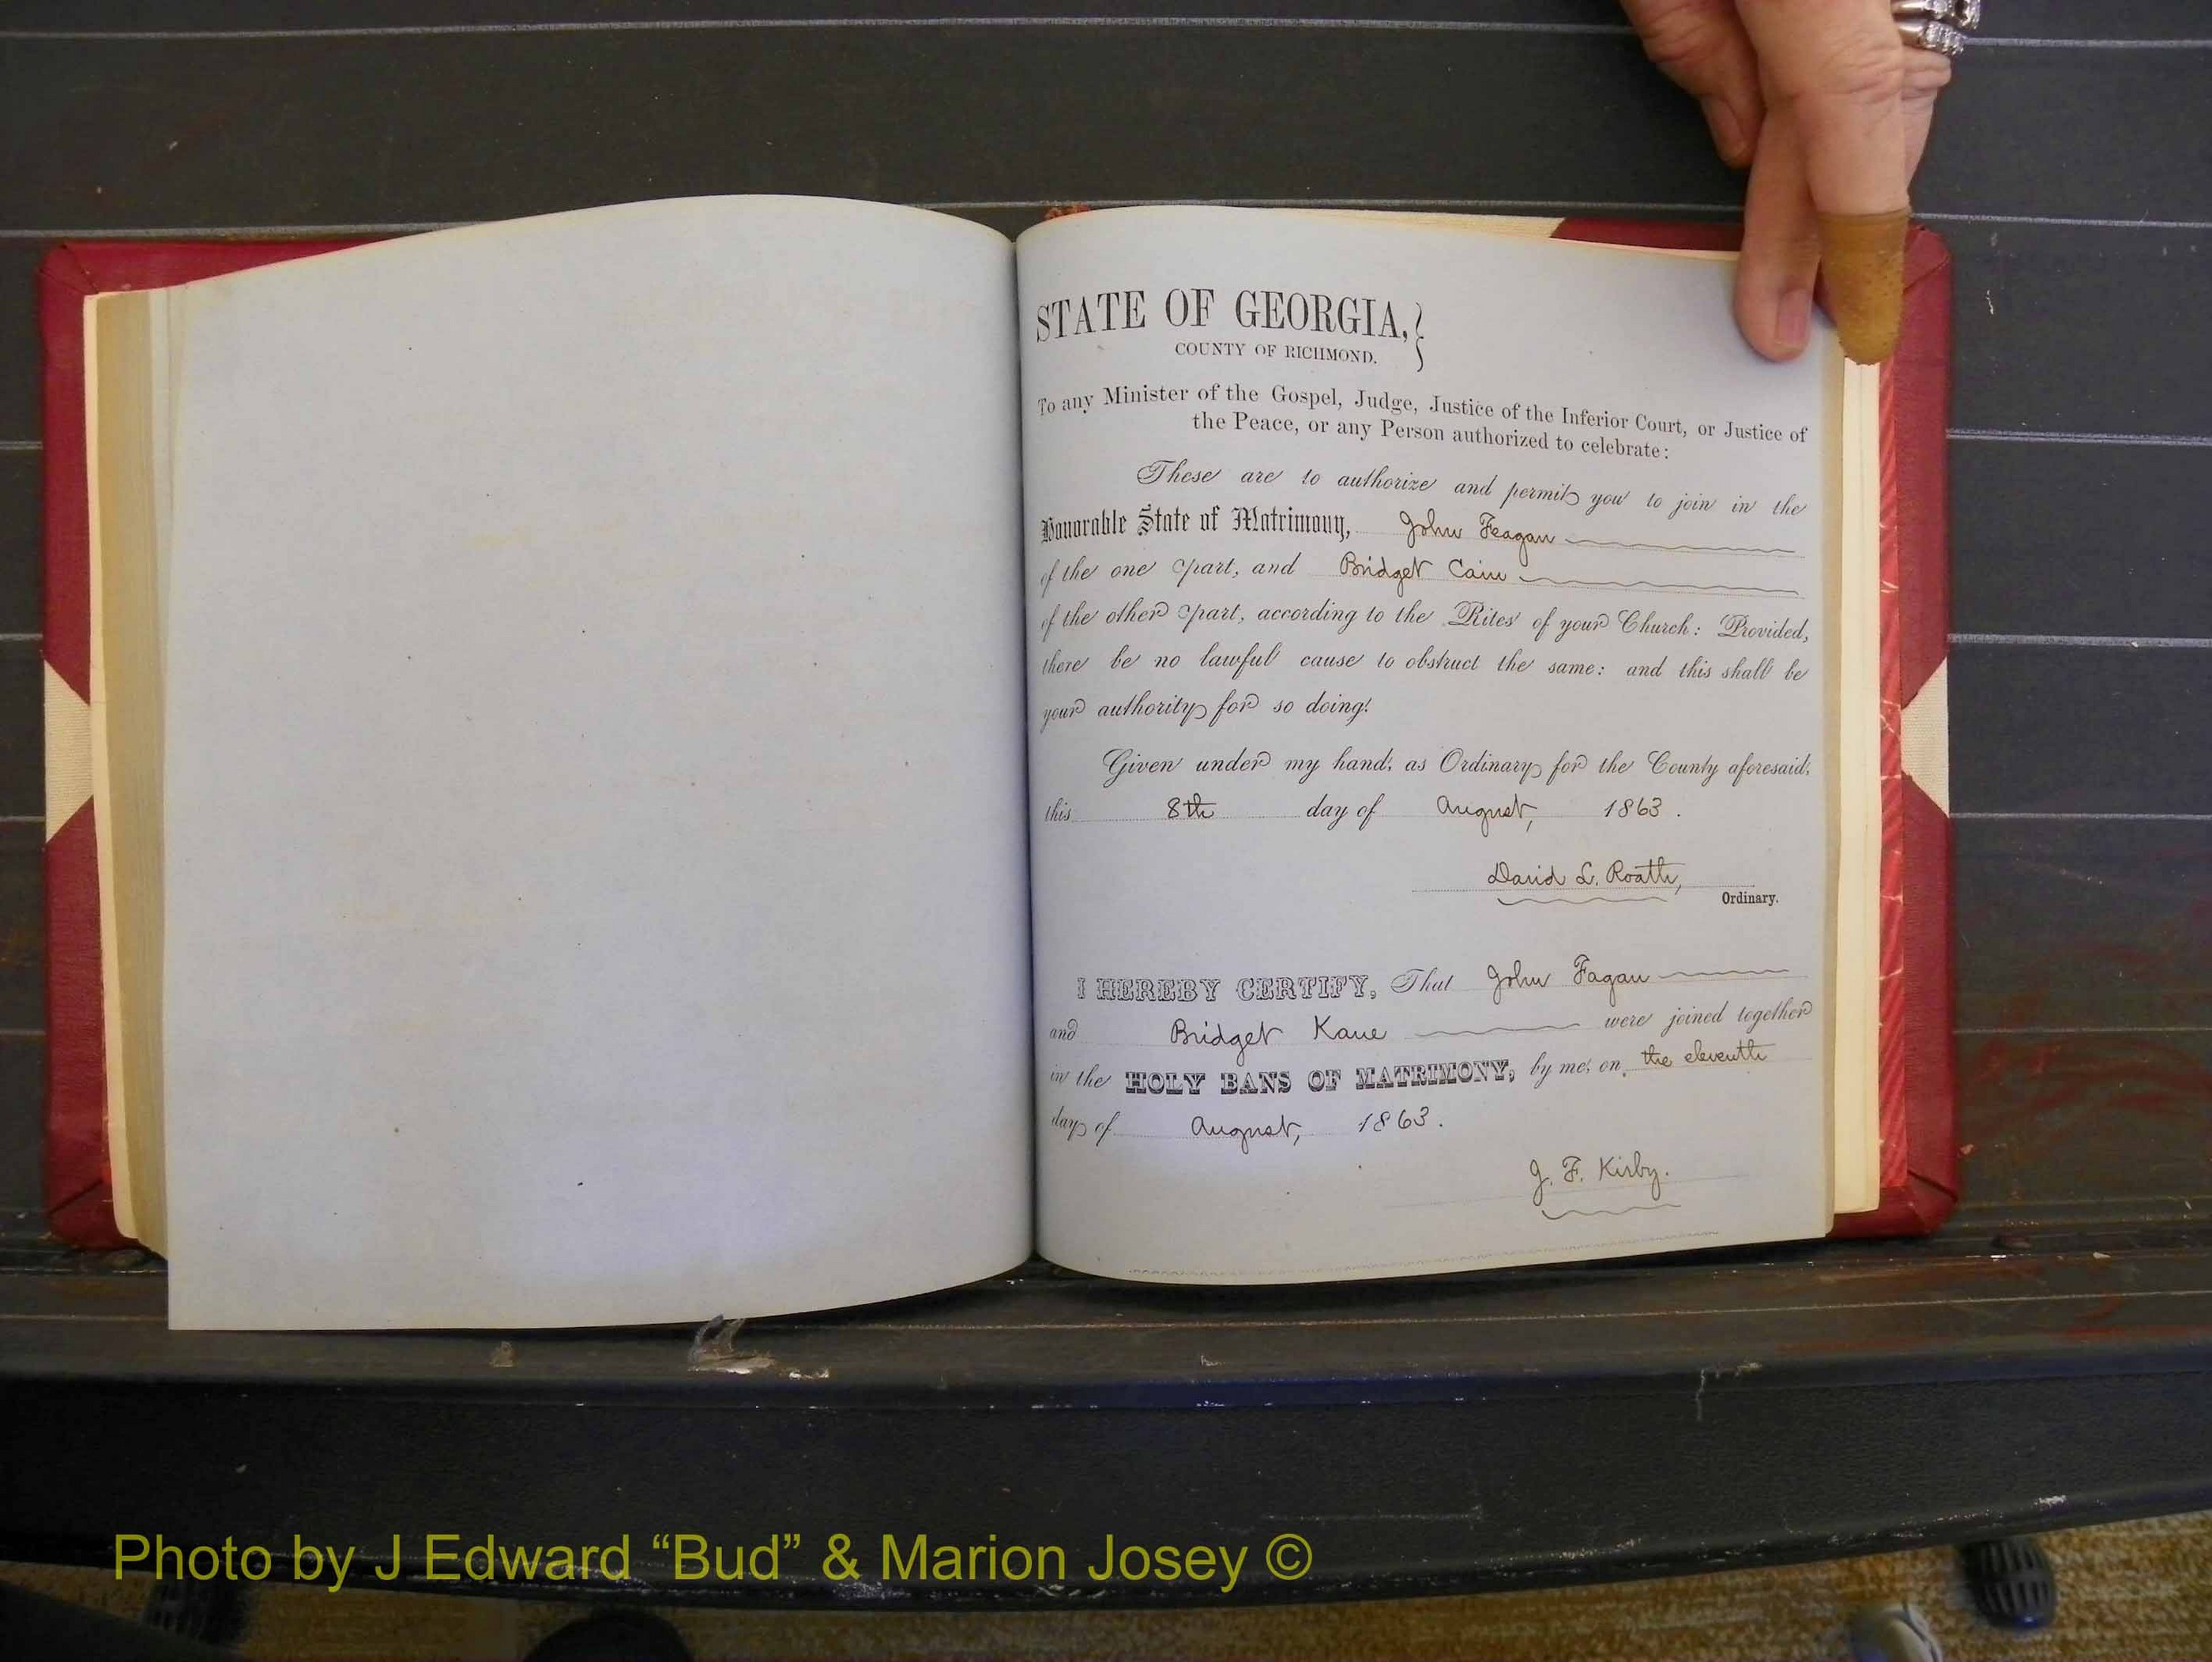 STATE OF GEORGIA,
COUNTY OF RICHMOND.
To any Minister of the Gospel, Judge, Justice of the Inferior Court, or Justice of
the Peace, or any Person authorized to celebrate:
These are to authorize and permit you to join in the
Honorable State of Matrimony, John Feagan
of the one part, and Bridget Cain
of the other part, according to the Rites of your Church: Provided,
there be no lawful cause to obstruct the same: and this shall be
your authority for so doing!
Given under my hand, as Ordinary for the County aforesaid,
this 8th day of August, 1863.
David L. Roath,
Ordinary.
I HEREBY CERTIFY, That John Fagan
and Bridget Kane were joined together
in the HOLY BANS OF MATRIMONY, by me, on the eleventh
day of August, 1863.
J. F. Kirby.
Photo by J Edward “Bud” & Marion Josey ©